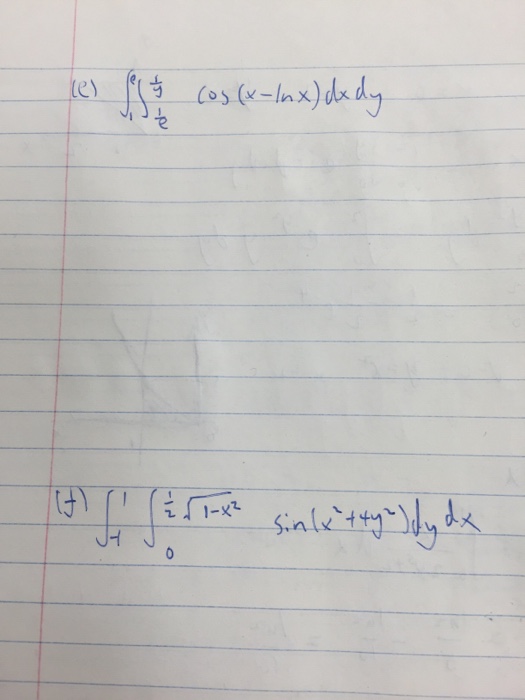 (e) ∫₁^e ∫_{1/e}^{1/y} cos(x-lnx)dxdy
(f) ∫₋₁^1 ∫₀^{½√(1-x²)} sin(x²+4y²)dydx